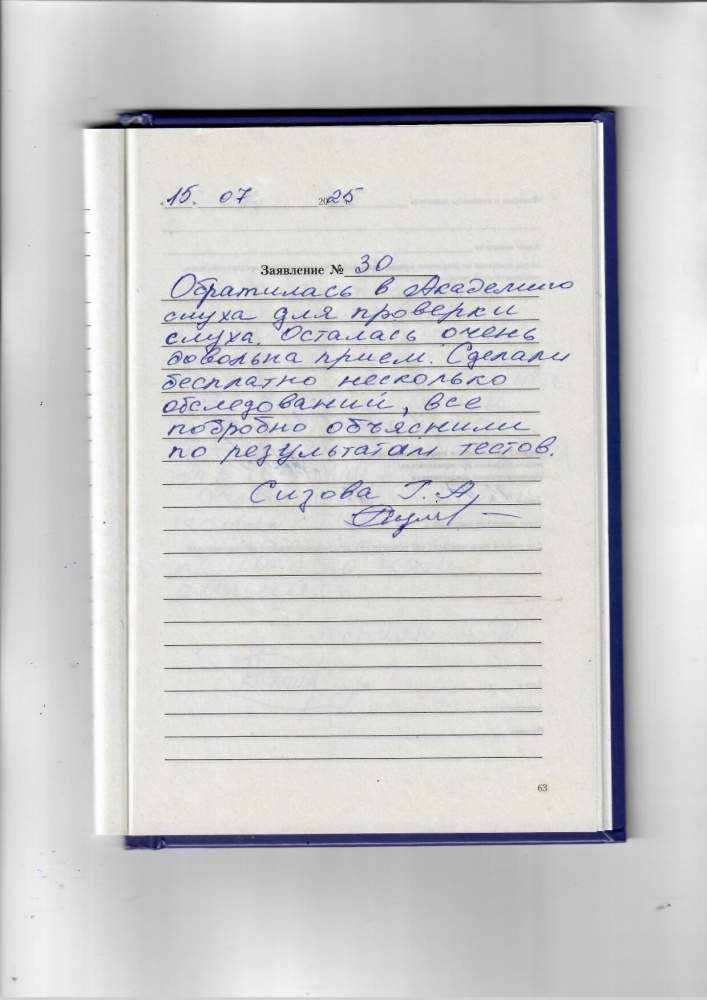 15. 07 2025
Заявление № 30
Обратилась в Академию
слуха для проверки
слуха. Осталась очень
довольна прием. Сделали
бесплатно несколько
обследований, все
побробно объяснили
по результатам тестов.
Сизова Т. А.
63